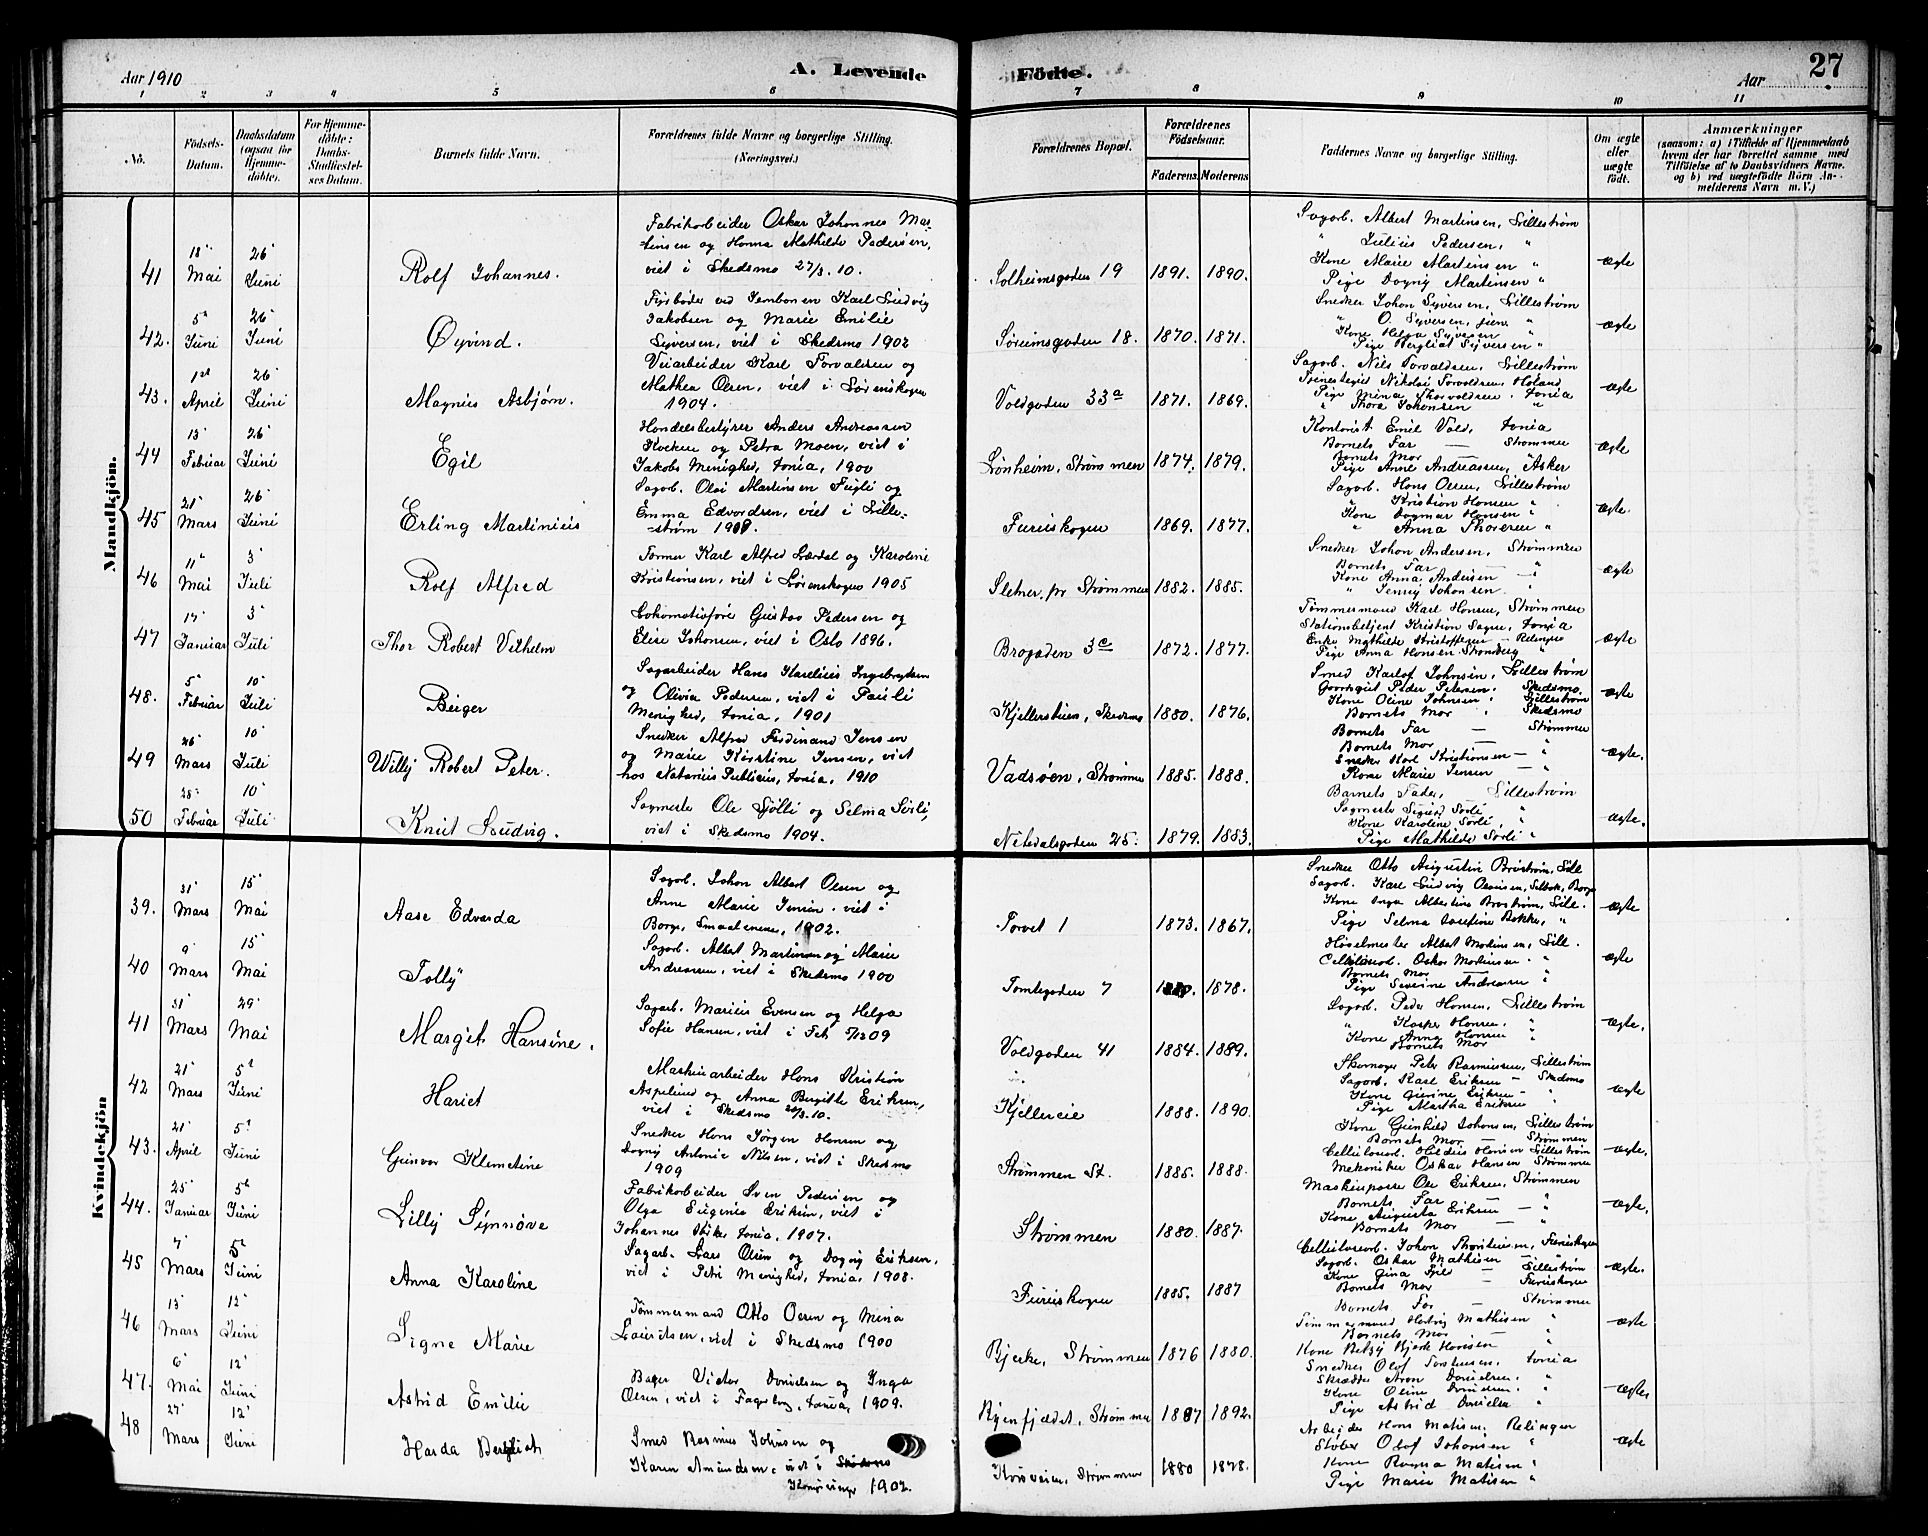 Aar 1910
A. Levende
Fødte.
27
Aar
1 2 3 4 5 6 7 8 9 10 11
No.
Fødsels-
Datum.
Daabsdatum
(ogsaa for
Hjemme-
døbte).
For Hjemme-
døbte:
Daabs-
Stadfæstel-
ses Datum.
Barnets fulde Navn.
Forældrenes fulde Navne og borgerlige Stilling.
(Næringsvei.)
Forældrenes Bopæl.
Forældrenes
Fødselsaar.
Faderens.
Moderens
Faddernes Navne og borgerlige Stilling.
Om ægte
eller
uægte
født.
Anmærkninger
(saasom: a) i Tilfælde af Hjemmedaab
hvem der har forrettet samme med
Tilføielse af to Daabsvidners Navne.
og b) ved uægtefødte Børn An-
melderens Navn m. V.)
Mandkjön.
41
18 Mai
26 Juni
Rolf Johannes.
Fabrikarbeider Oskar Johannes Mar-
tinsen og Hanna Mathilde Pedersen,
viet i Skedsmo 27/3. 10.
Solheimsgaden 19
1891. 1890.
Sagarb. Albert Martinsen, Lillestrøm
" Julius Pedersen, "
Kone Marie Martinsen "
Pige Dagny Martinsen "
ægte
42.
5 Juni
26 Juni
Øyvind.
Fyrbøder ved Jernbanen Karl Ludvig
Jakobsen og Marie Emilie
Syversen, viet i Skedsmo 1902
Sørumsgaden 18.
1870. 1871.
Snedker Johan Syversen, Lillestrøm
" O. Syversen, jun. "
Kone Helga Syversen "
Pige Bergliot Syversen "
ægte
43.
1 April
26 Juni
Magnus Asbjørn.
Veiarbeider Karl Torvaldsen og
Mathea Olsen, viet i Lørenskogen
1904.
Voldgaden 33a
1871. 1869.
Sagarb. Nils Torvaldsen, Lillestrøm
Nikolai Torvaldsen, Høland
Pige Mina Thorvaldsen, Xania
" Thora Johansen "
ægte
44
13 Februar
26 Juni
Egil
Handelsbestyrer Anders Andreassen
og Petra Moen, viet i
Jakobs Menighed, Xania, 1900
Lønheim, Strømmen
1874. 1879.
Kontorist Emil Vold, Xania
Barnets Far — Strømmen
Barnets Mor
Pige Anne Andreassen, Asker
ægte
45
21 Mars
26 Juni
Erling Martinius
Sagarb. Olai Martinsen Fugli og
Emma Edvardsen, viet i Lille-
strøm 1908.
Furuskogen
1869. 1877.
Sagarb. Hans Olsen, Lillestrøm
" Kristian Hansen "
Kone Dagmar Hansen "
" Anna Thoresen "
ægte.
46
11 Mai
3 Juli
Rolf Alfred
Former Karl Alfred Lærdal og Karoline
Kristiansen, viet i Lørenskogen 1905
Sletner, pr Strømmen
1882. 1885.
Snedker Johan Andersen, Strømmen
Barnets Far — "
Kone Anna Andersen — "
" Jenny Johansen
ægte
47
17 Januar
3 Juli
Thor Robert Vilhelm
Lokomotivfører Gustav Pedersen og
Elise Johansen, viet i Oslo 1896.
Brogaden 3c
1872. 1877.
Tømmermand Karl Hansen, Strømmen
Stationsbetjent Kristian Sagen, Xania
Enke Mathilde Kristoffersen — Rælingen
Pige Anna Hansen Strandberg "
ægte
48.
5 Februar
10 Juli
Birger
Sagarbeider Hans Karelius Ingebrigtsen
og Olivia Pedersen, viet i Pauli
Menighed, Xania, 1901
Kjellerstuen, Skedsmo
1880. 1876.
Smed Karlof Johnsen, Lillestrøm
Peder Petersen, Skedsmo
Kone Oline Johnsen, Lillestrøm
Barnets Mor, Skedsmo
ægte
49
26 Mars
10 Juli
Willy Robert Peter.
Snedker Alfred Ferdinand Jensen
og Marie Kirstine Jensen, viet
hos Notarius Publicus, Xania, 1910
Vadsøen, Strømmen
1885. 1888.
Barnets Far — Strømmen
Barnets Mor — "
Snedker Karl Kristiansen — "
Kone Marie Jensen — "
ægte.
50
28 Februar
10 Juli
Knut Ludvig.
Sagmester Ole Sørli og Selma Sørli,
viet i Skedsmo 1904.
Nitedalsgaden 25.
1879. 1883.
Barnets Fader, Lillestrøm
Sagmester Sigurd Sørli "
Kone Karoline Sørli, "
Pige Mathilde Sørli "
ægte.
Kvindekjön
39.
31 Mars
15 Mai
Aase Edvarda
Sagarb. Johan Albert Olsen og
Anne Marie Jensen, viet i
Borge, Smaalenene, 1902.
Torvet 1
1873. 1867.
Snedker Otto Augustin Broström, Lill
Sagarb. Karl Ludvig Olausen, Selbak, Borge
Kone Inga Albertine Broström, Lill.
Pige Selma Josefine Bakke, "
ægte
40
9 Mars
15 Mai
Tolly
Sagarb. Albert Martinsen og Marie
Andreassen, viet i Skedsmo 1900
Tomtegaden 7
1878.
Høvelmester Albert Martinsen, Lill.
Cellulosearb. Oskar Martinsen "
Barnets Mor — "
Pige Severine Andreassen "
ægte
41
31 Mars
29 Mai
Margit Hansine.
Sagarb. Marius Evensen og Helga
Sofie Hansen, viet i Fet 5/12 09
Voldgaden 41
1884. 1889.
Sagarb. Peder Hansen, Lillestrøm
" Kasper Hansen. "
Kone Anna Hansen "
Barnets Mor "
ægte.
42
21 Mars
5 Juni
Hariet
Maskinarbeider Hans Kristian
Aspelund og Anna Birgitte Eriksen,
viet i Skedsmo 20/3. 10.
Kjellereie
1888. 1890.
Skomager Peter Rasmussen, Lillestrøm
Sagarb. Karl Eriksen — Skedsmo
Kone Gusine Eriksen — "
Pige Martha Eriksen "
ægte
43.
21 April
5 Juni
Gunvor Klementine
Snedker Hans Jørgen Hansen og
Dagny Antonie Nilsen, viet i Skedsmo
1909
Strømmen St.
1885. 1888.
Kone Gunhild Johansen, Lillestrøm
Barnets Mor — Strømmen
Cellulosearb. Hildus Hansen Lillestrøm
Mekaniker Oskar Hansen Strømmen
ægte.
44.
25 Januar
5 Juni
Lilly Synnøve
Fabrikarbeider Sven Pedersen og
Olga Eugenie Eriksen, viet i
Johannes Kirke Xania, 1907.
Strømmen
1880. 1887.
Maskinpasser Ole Eriksen, Strømmen
Barnets Far — "
Kone Augusta Eriksen — "
Barnets Mor — "
ægte.
45
7 Mars
5 Juni
Anna Karoline
Sagarb. Lars Olsen og Dagny Eriksen,
viet i Petri Menighed, Xania, 1908.
Furuskogen
1885. 1887
Cellulosearb. Johan Furuskogen
Sagarb. Oskar Mathisen "
Kone Gina — Lillestrøm
Barnets Mor — Furuskogen
ægte.
46
13 Mars
12 Juni
Signe Marie
Tømmermand Otto Olsen og Mina
Lauritsen, viet i Skedsmo 1900
Bjerke, Strømmen
1876 1880.
Barnets Far — Strømmen
Tømmermand Hartvig Mathisen "
Barnets Mor — "
Kone Betsy Bjerk Hansen "
ægte
47.
6 Mai
12 Juni
Astrid Emilie
Bager Victor Danielsen og Inga
Olsen, viet i Fagerborg, Xania, 1909.
Strømmen
1887 1892.
Snedker Olof Torstensen, Xania
Skrædder Aron Danielsen. "
Kone Oline Danielsen. "
Pige Astrid Danielsen "
ægte.
48
27 Mars
12 Juni
Harda Bergliot
Smed Rasmus Johnsen og
Karen Amundsen, viet i Skedsmo
Kongsvinger 1902.
Korsveien, Strømmen
1880 1878.
Arbeider Hans Matisen, Relingen
Støber Olof Johansen "
Kone Ragna Matisen "
Pige Marie Matisen "
ægte